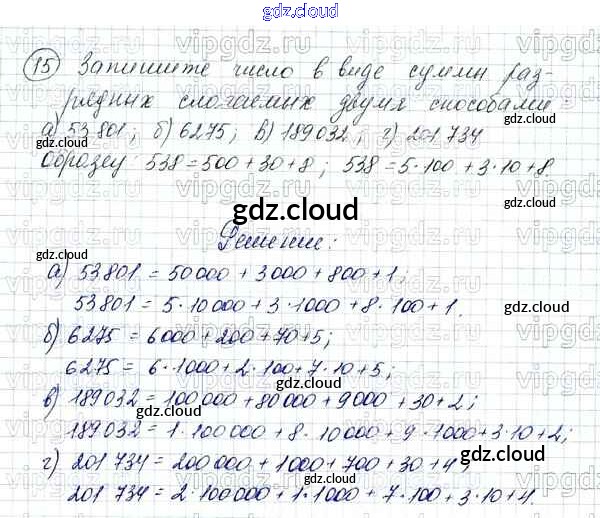 gdz.cloud
15 Запишите число в виде суммы раз-
рядных слагаемых двумя способами
а) 53801; б) 6275; в) 189032; г) 201 734
Образец: 538 = 500 + 30 + 8; 538 = 5·100 + 3·10 + 8.
gdz.cloud
Решение:
а) 53801 = 50000 + 3000 + 800 + 1;
53801 = 5·10000 + 3·1000 + 8·100 + 1.
б) 6275 = 6000 + 200 + 70 + 5;
6275 = 6·1000 + 2·100 + 7·10 + 5;
в) 189032 = 100000 + 80000 + 9000 + 30 + 2;
189032 = 1·100000 + 8·10000 + 9·1000 + 3·10 + 2;
г) 201 734 = 200000 + 1000 + 700 + 30 + 4;
201 734 = 2·100000 + 1·1000 + 7·100 + 3·10 + 4.